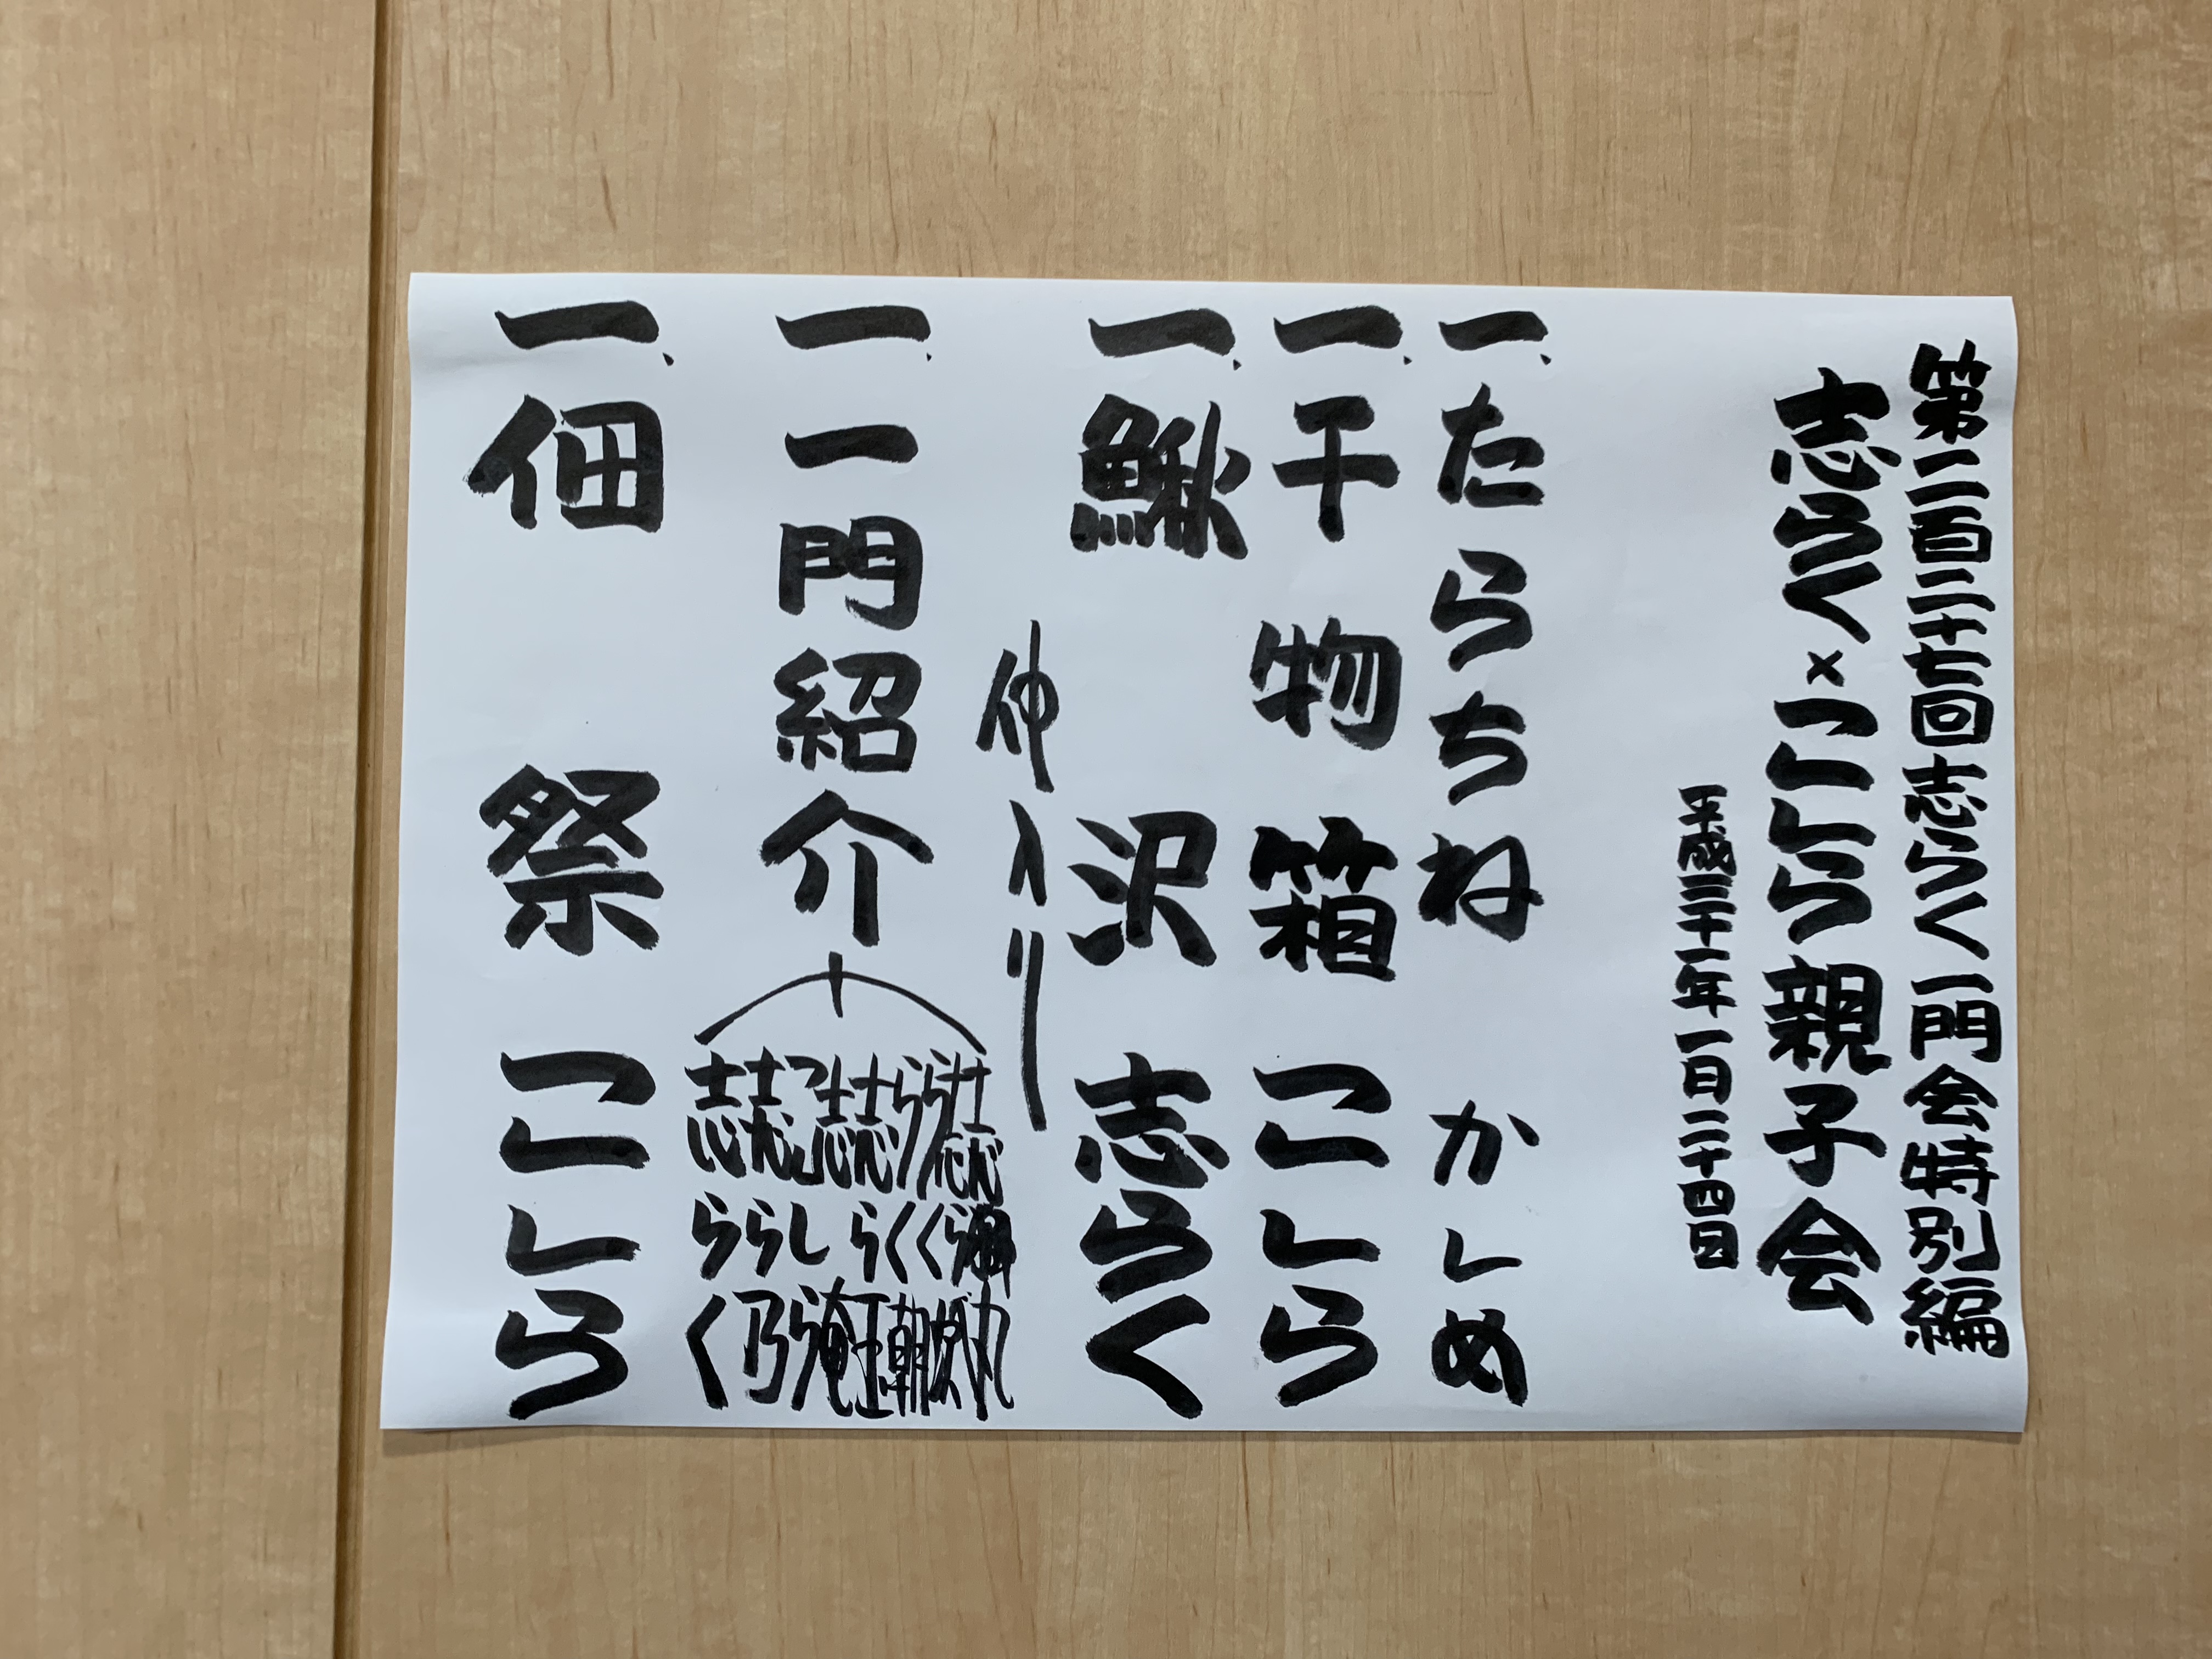 第二百二十七回志らく一門会特別編
志らく×こしら親子会
平成三十一年一月二十四日
一、たらちね かしめ
一、干物箱 こしら
一、鰍沢 志らく
仲入り
一、一門紹介
らく朝
こしら
志ら乃
志らく
一、佃祭 こしら